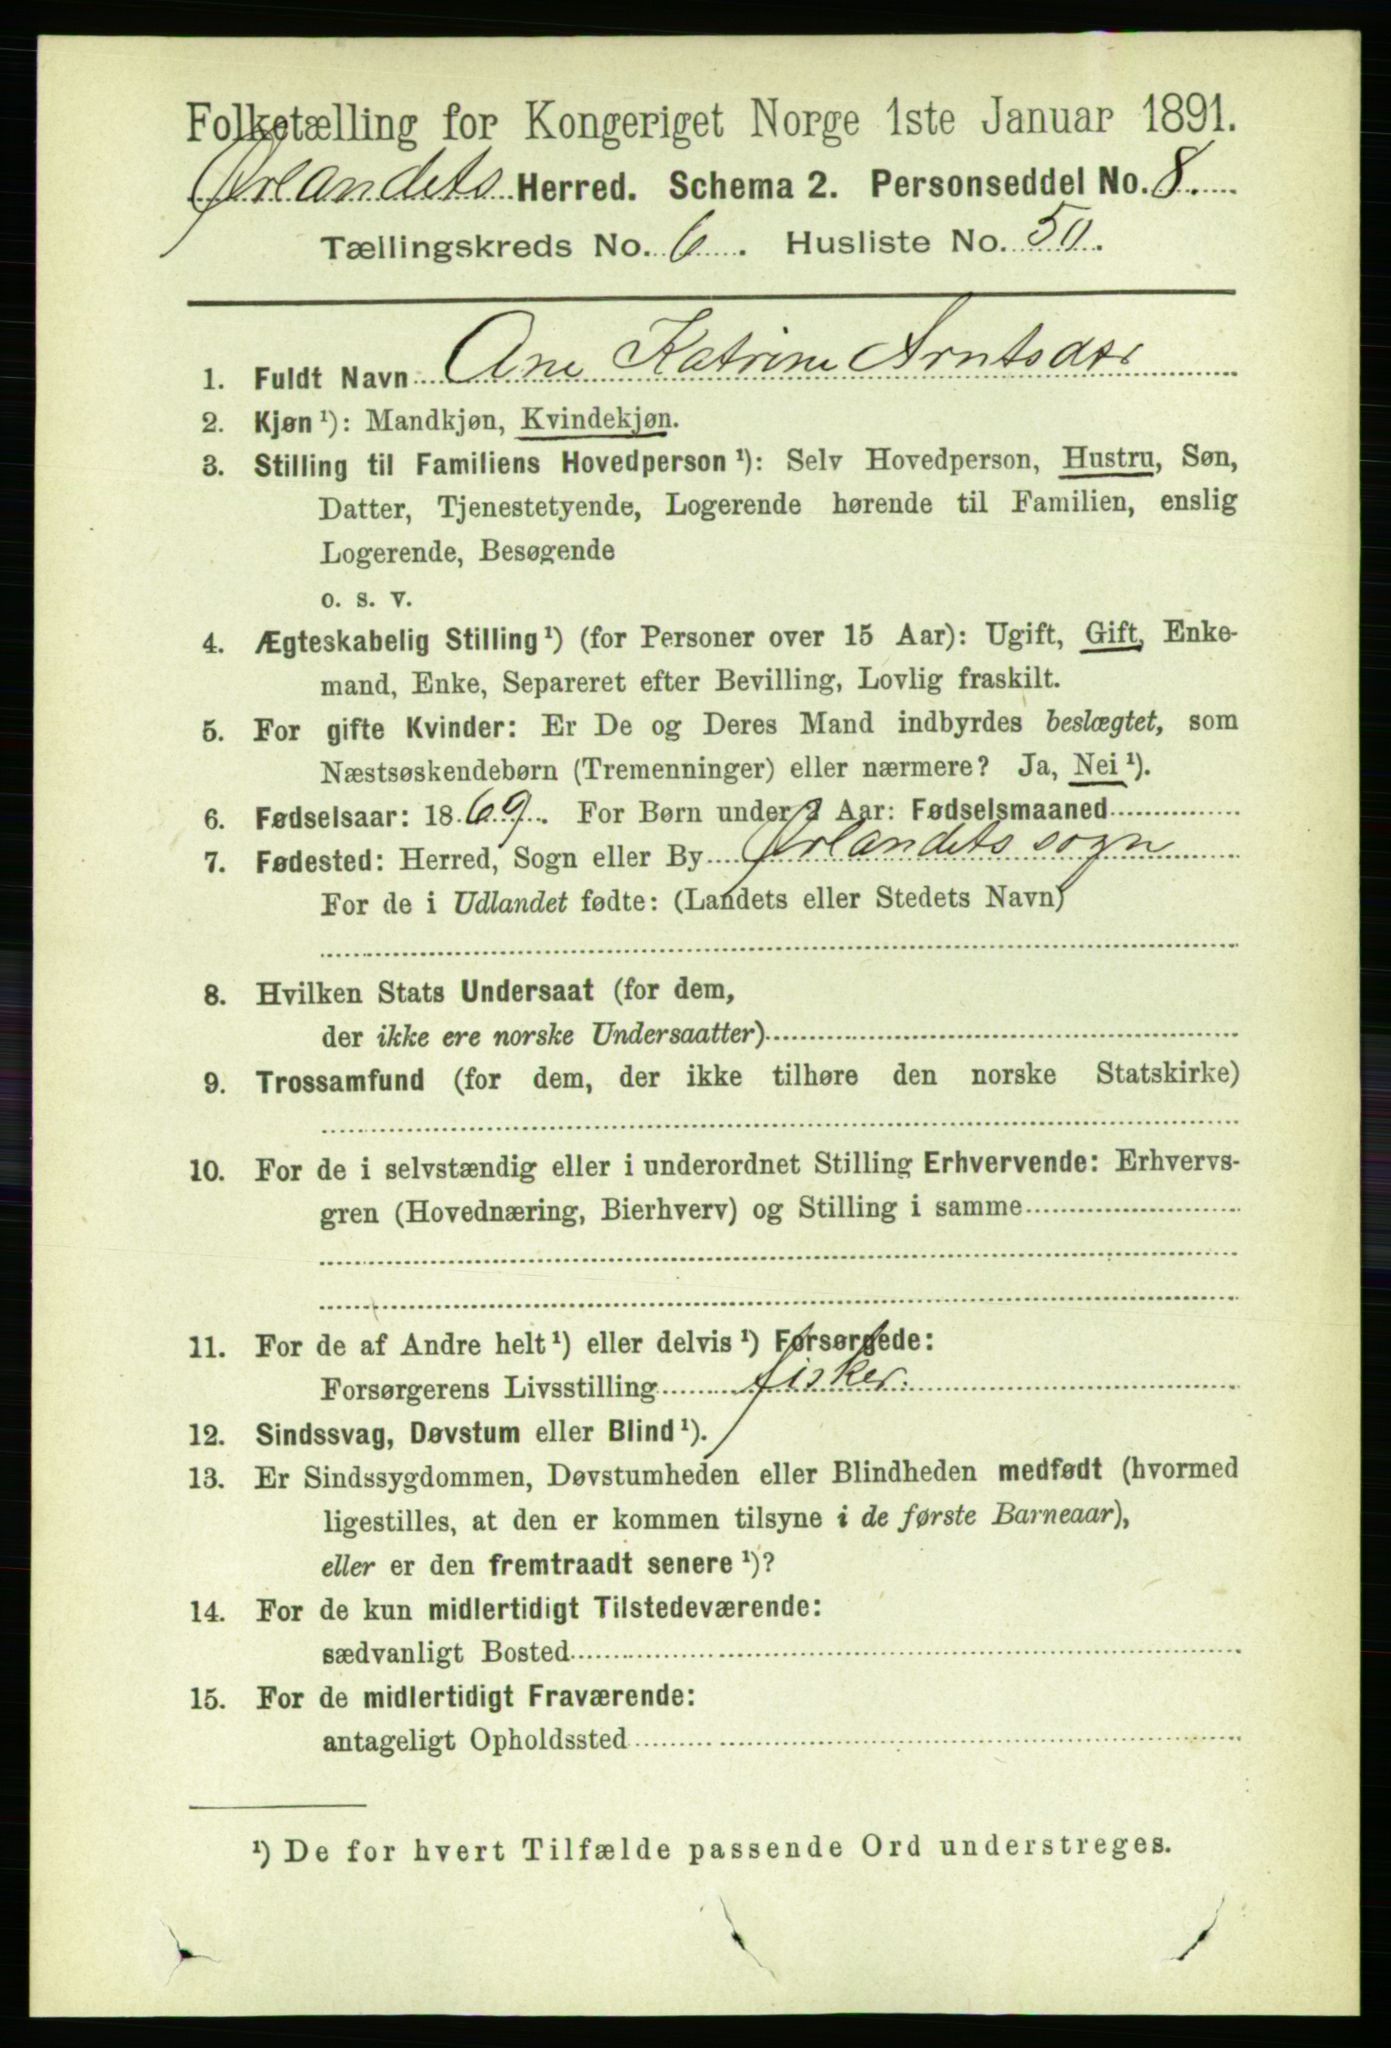 Folketælling for Kongeriget Norge 1ste Januar 1891.
Ørlandets Herred. Schema 2. Personseddel No. 8.
Tællingskreds No. 6. Husliste No. 50.
1. Fuldt Navn Ane Katrine Arntsdtr
2. Kjøn ¹): Mandkjøn, Kvindekjøn.
3. Stilling til Familiens Hovedperson ¹): Selv Hovedperson, Hustru, Søn,
Datter, Tjenestetyende, Logerende hørende til Familien, enslig
Logerende, Besøgende
o. s. v.
4. Ægteskabelig Stilling ¹) (for Personer over 15 Aar): Ugift, Gift, Enke-
mand, Enke, Separeret efter Bevilling, Lovlig fraskilt.
5. For gifte Kvinder: Er De og Deres Mand indbyrdes beslægtet, som
Næstsøskendebørn (Tremenninger) eller nærmere? Ja, Nei ¹).
6. Fødselsaar: 1869. For Børn under 2 Aar: Fødselsmaaned
7. Fødested: Herred, Sogn eller By Ørlandets sogn
For de i Udlandet fødte: (Landets eller Stedets Navn)
8. Hvilken Stats Undersaat (for dem,
der ikke ere norske Undersaatter)
9. Trossamfund (for dem, der ikke tilhøre den norske Statskirke)
10. For de i selvstændig eller i underordnet Stilling Erhvervende: Erhvervs-
gren (Hovednæring, Bierhverv) og Stilling i samme
11. For de af Andre helt ¹) eller delvis ¹) Forsørgede:
Forsørgerens Livsstilling fisker.
12. Sindssvag, Døvstum eller Blind ¹).
13. Er Sindssygdommen, Døvstumheden eller Blindheden medfødt (hvormed
ligestilles, at den er kommen tilsyne i de første Barneaar),
eller er den fremtraadt senere ¹)?
14. For de kun midlertidigt Tilstedeværende:
sædvanligt Bosted
15. For de midlertidigt Fraværende:
antageligt Opholdssted
¹) De for hvert Tilfælde passende Ord understreges.